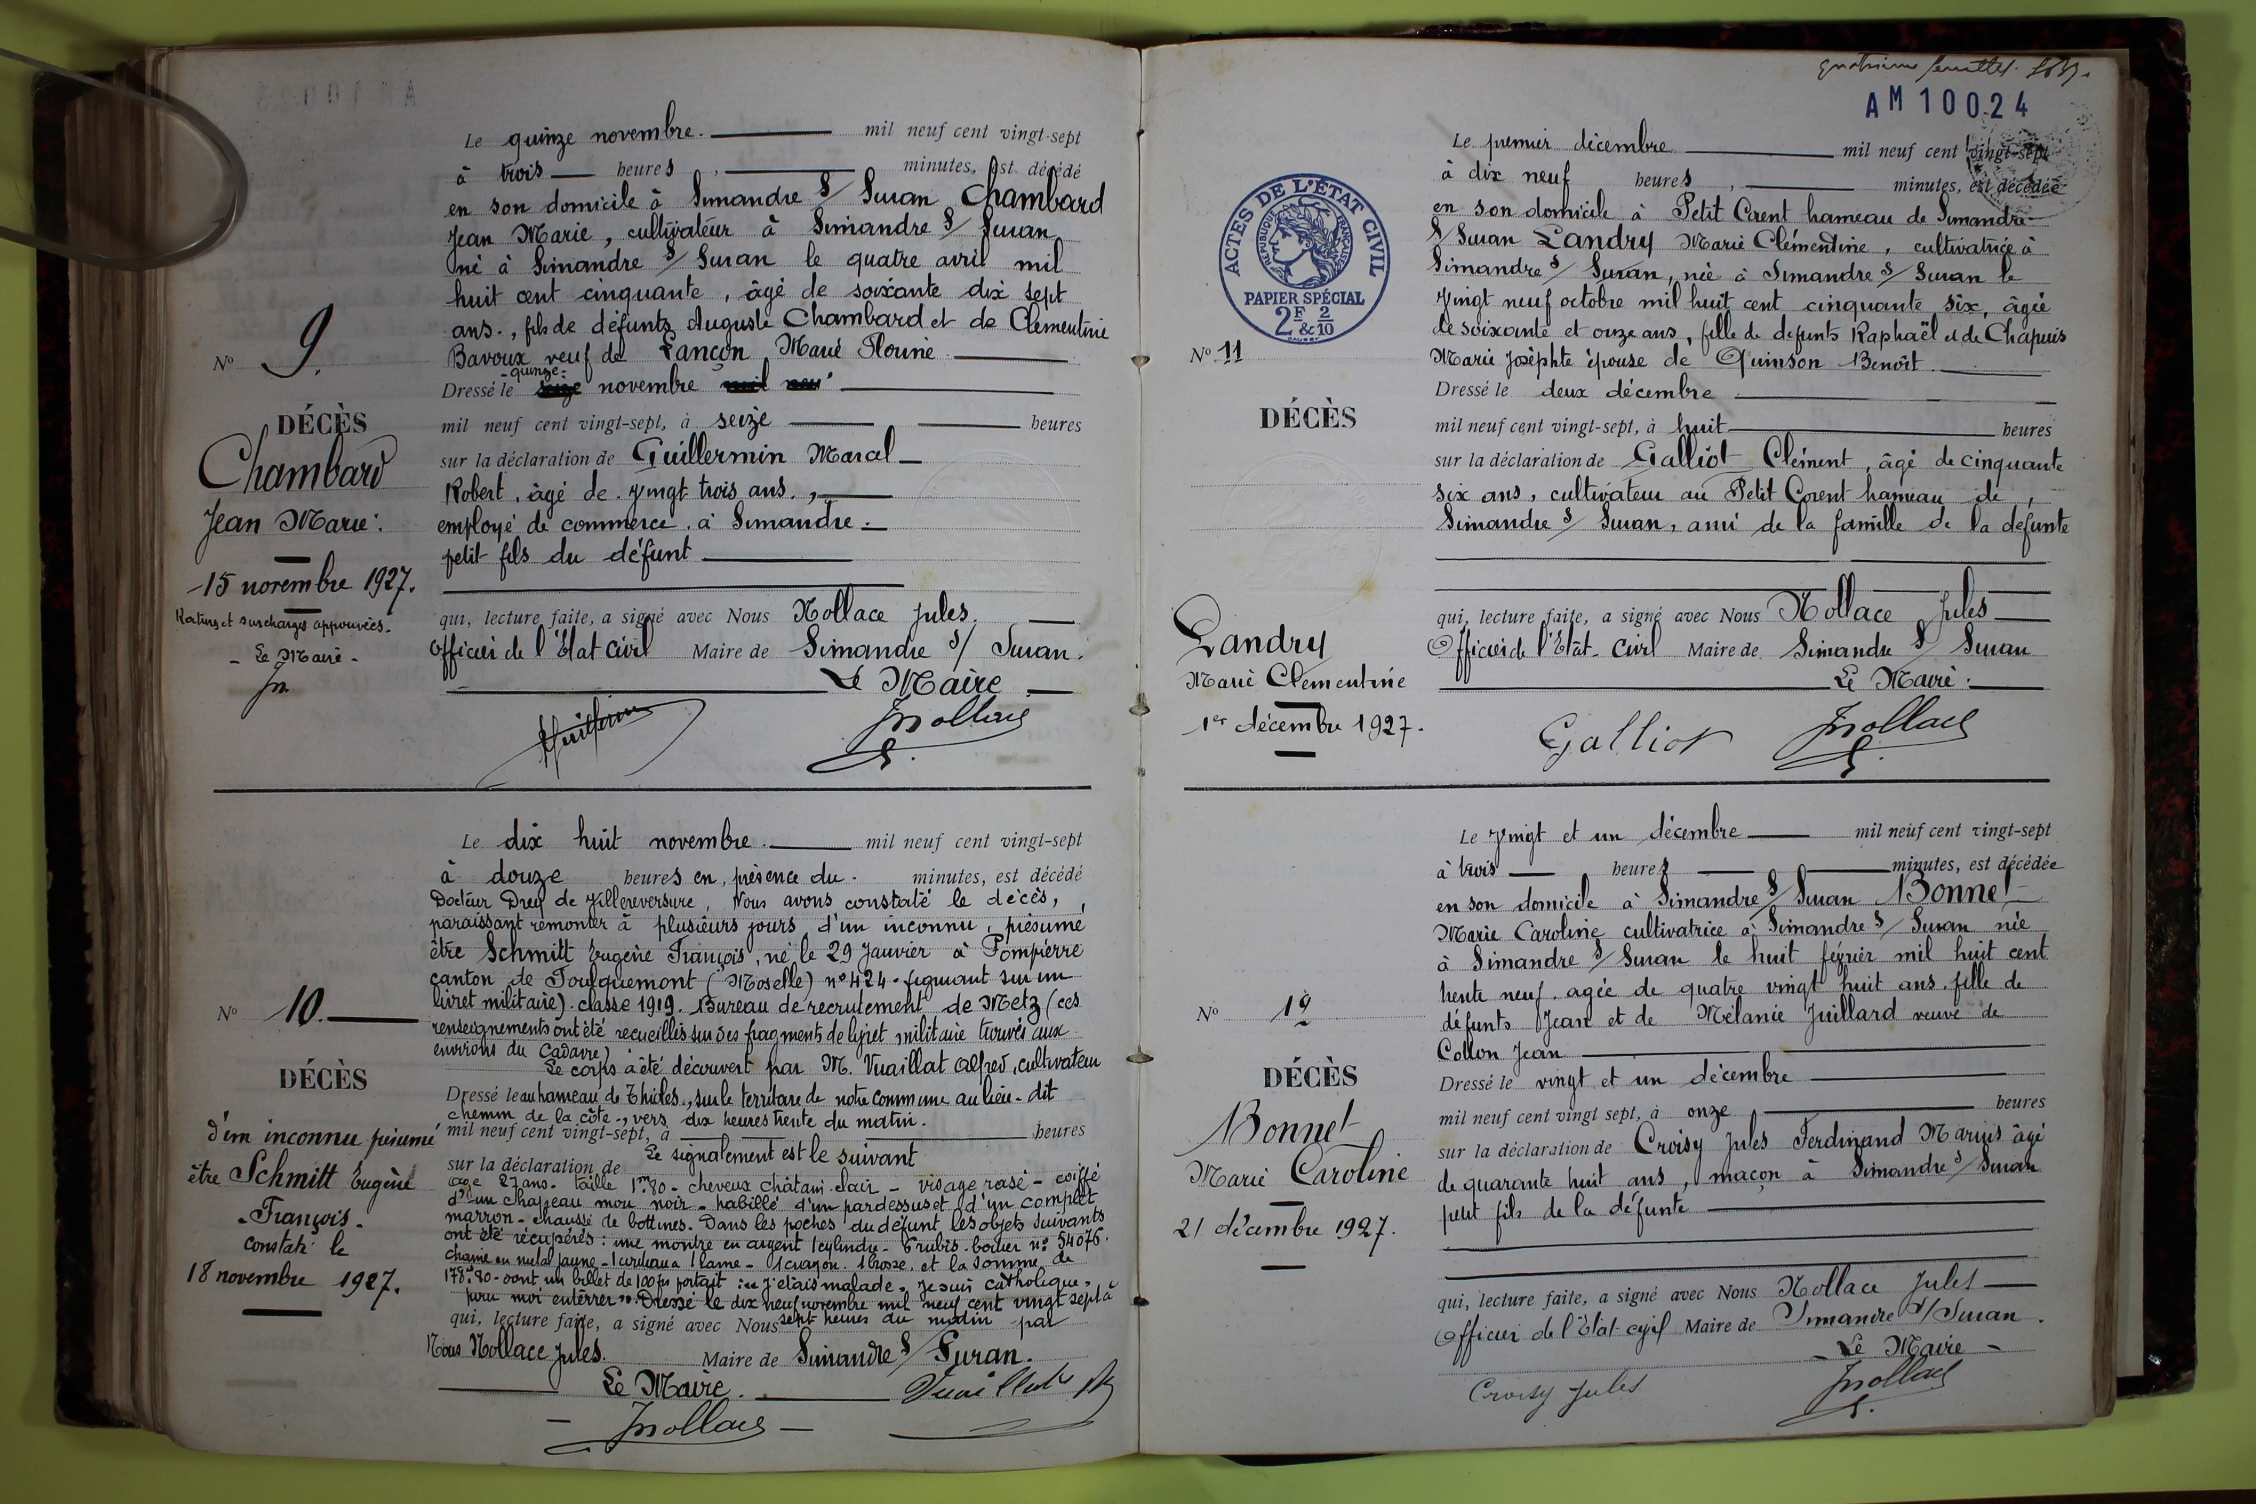 Le quinze novembre. mil neuf cent vingt-sept
à trois heures, minutes, est décédé
en son domicile à Simandre s/ Suran Chambard
Jean Marie, cultivateur à Simandre s/ Suran
né à Simandre s/ Suran le quatre avril mil
huit cent cinquante, âgé de soixante dix sept
ans., fils de défunts Auguste Chambard et de Clémentine
Bavoux veuf de Lançon Marie Florine
Nº 9.
- quinze:
Dressé le novembre
DÉCÈS
mil neuf cent vingt-sept, à seize heures
Chambard
sur la déclaration de Guillermin Marcel
Robert, âgé de vingt trois ans.,
Jean Marie.
employé de commerce, à Simandre.
petit fils du défunt
15 novembre 1927.
Ratures et surcharges approuvées.
- Le Maire -
qui, lecture faite, a signé avec Nous Nollace Jules.
Officier de l'Etat civil Maire de Simandre s/ Suran.
Le Maire
JNollace
Le dix huit novembre. mil neuf cent vingt-sept
à douze heures en présence du minutes, est décédé
Docteur Drey de Villereversure, Nous avons constaté le décès,
paraissant remonter à plusieurs jours d'un inconnu, présumé
être Schmitt Eugène François, né le 29 Janvier à Pompierre
canton de Foulquemont (Moselle) nº 424. figurant sur un
livret militaire). classe 1919. Bureau de recrutement de Metz (ces
renseignements ont été recueillis sur des fragments de livret militaire trouvés aux
environs du cadavre)
Nº 10.
Le corps a été découvert par M. Vuaillat Alfred, cultivateur
DÉCÈS
Dressé le au hameau de Thioles, sur le territoire de notre commune au lieu-dit
chemin de la côte, vers dix heures trente du matin.
d'un inconnu présumé
mil neuf cent vingt-sept, à heures
être Schmitt Eugène
- François -
constaté le
18 novembre 1927.
Le signalement est le suivant
sur la déclaration de
age 27 ans. taille 1m80 - cheveux châtain clair - visage rasé - coiffé
d'un chapeau mou noir - habillé d'un pardessus et d'un complet
marron - chaussé de bottines. Dans les poches du défunt les objets suivants
ont été récupérés : une montre en argent 1 cylindre - 6 rubis. boitier nº 54076.
chaine en métal jaune - 1 couteau 1 lame - 1 crayon. 1 brosse, et la somme de
178f80 - dont un billet de 100 frs portait : "J'étais malade, je suis catholique,
pour moi entérrer". Dressé le dix neuf novembre mil neuf cent vingt sept à
sept heures du matin par
qui, lecture faite, a signé avec Nous
Nous Nollace Jules. Maire de Simandre s/ Suran.
Le Maire.
Vuaillat
JNollace
AM 10024
Le premier décembre mil neuf cent vingt-sept
à dix neuf heures, minutes, est décédée
en son domicile à Petit Corent hameau de Simandre
s/ Suran Landry Marie Clémentine, cultivatrice à
Simandre s/ Suran, née à Simandre s/ Suran le
vingt neuf octobre mil huit cent cinquante six, âgée
de soixante et onze ans, fille de défunts Raphaël et de Chapuis
Marie Josèphte épouse de Quinson Benoît
ACTES DE L'ÉTAT CIVIL
RÉPUBLIQUE FRANÇAISE
PAPIER SPÉCIAL
2F & 2/10
Nº 11
Dressé le deux décembre
DÉCÈS
mil neuf cent vingt-sept, à huit heures
sur la déclaration de Galliot Clément, âgé de cinquante
six ans, cultivateur au Petit Corent hameau de,
Simandre s/ Suran, ami de la famille de la défunte
Landry
Marie Clémentine
1er décembre 1927.
qui, lecture faite, a signé avec Nous Nollace Jules
Officier de l'Etat-Civil Maire de Simandre s/ Suran
Le Maire.
Galliot JNollace
Le vingt et un décembre mil neuf cent vingt-sept
à trois heures minutes, est décédée
en son domicile à Simandre s/ Suran Bonnet
Marie Caroline cultivatrice à Simandre s/ Suran née
à Simandre s/ Suran le huit février mil huit cent
trente neuf. agée de quatre vingt huit ans. fille de
défunts Jean et de Mélanie Juillard veuve de
Collon Jean
Nº 12
DÉCÈS
Dressé le vingt et un décembre
mil neuf cent vingt sept, à onze heures
Bonnet
Marie Caroline
21 décembre 1927.
sur la déclaration de Croisy Jules Ferdinand Marius âgé
de quarante huit ans, maçon à Simandre s/ Suran
petit fils de la défunte
qui, lecture faite, a signé avec Nous Nollace Jules
Officier de l'Etat civil Maire de Simandre s/ Suran.
- Le Maire -
Croisy Jules JNollace